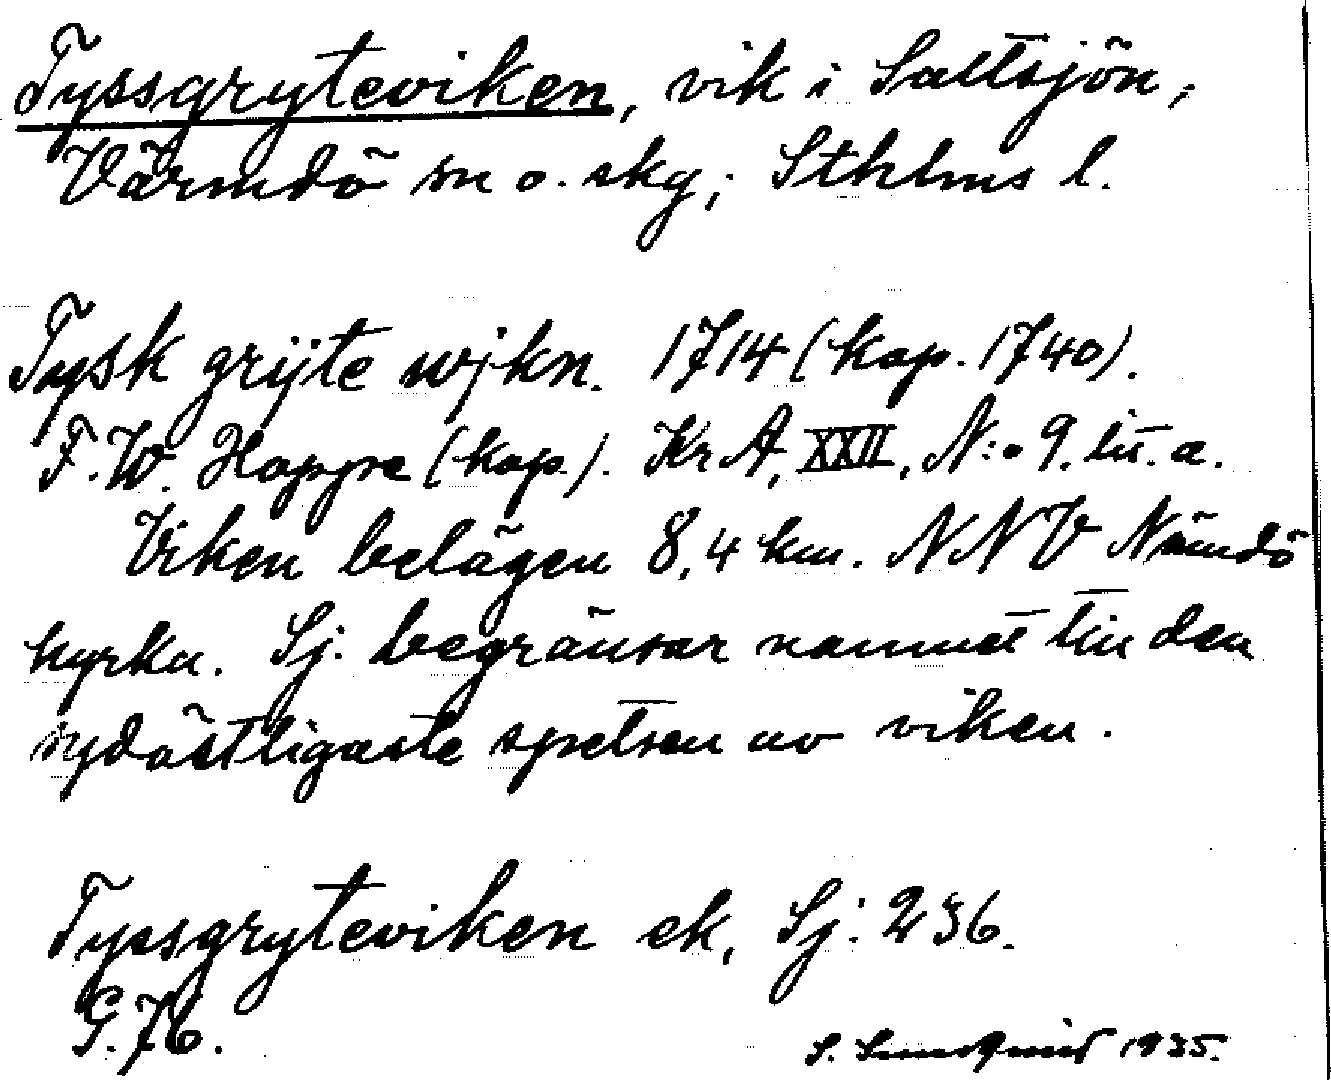 Tyssgryteviken, vik i Saltsjön,
Värmdö sn o. skg; Sthlms l.
Tysk grijte wjkn. 1714 (kop. 1740).
F. W. Hoppe (kop.). Kr A, XXII, N:o 9. lit. a.
Viken belägen 8,4 km. NNV Nämdö
kyrka. Sj. begränsar namnet till den
sydöstligaste spetsen av viken.
Tyssgryteviken ek, Sj: 236.
G. 76.
S. 1935.